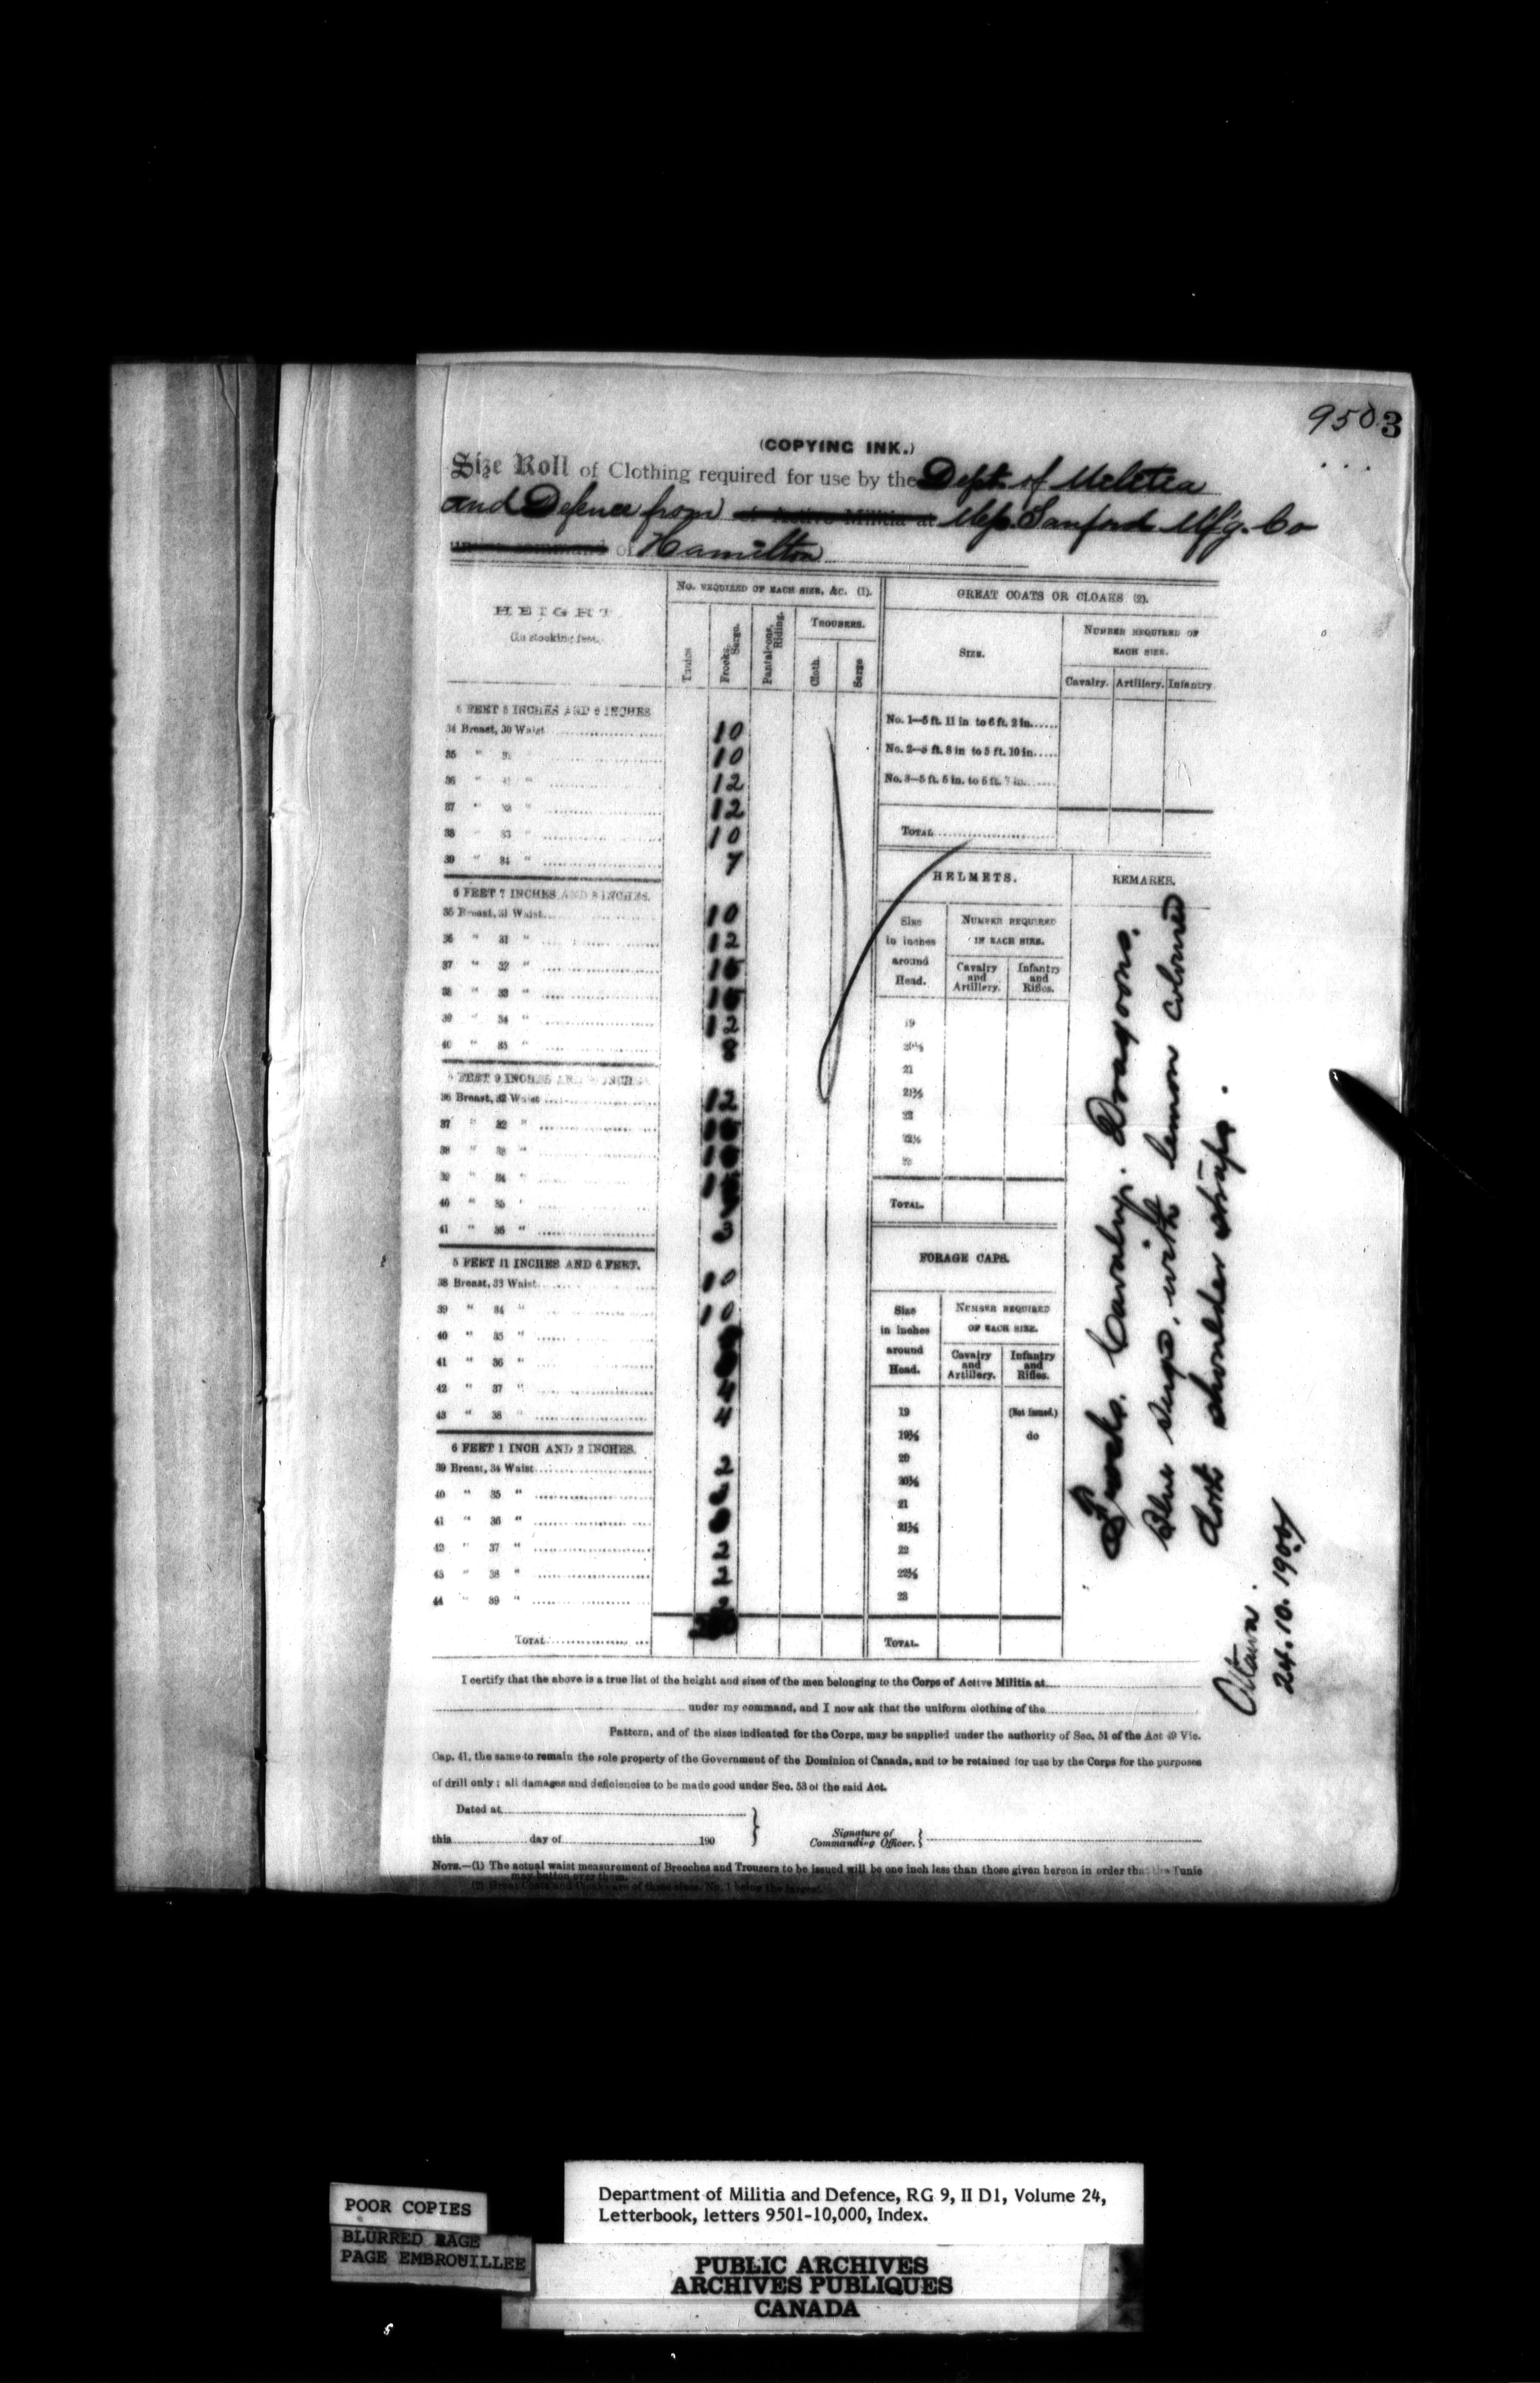 9503
(COPYING INK.)
Size Roll of Clothing required for use by the Dept. of Militia
and Defence from Sanford Mfg. Co
of Hamilton
HEIGHT
No. REQUIRED OF EACH SIZE, &c. (1).
Tunics
Frocks, Serge.
Pantaloons, Riding.
TROUSERS.
Cloth.
Serge
5 FEET 5 INCHES AND 6 INCHES
34 Breast, 30 Waist 10
35 " 10
36 " " 12
37 " " 12
38 " 33 " 10
39 " 34 " 7
5 FEET 7 INCHES AND 8 INCHES.
35 Breast, 31 Waist 10
36 " 31 " 12
37 " 32 "
38 " 33 "
39 " 34 " 12
40 " 35 " 8
FEET 9 INCHES AND
36 Breast, 32 Waist 12
37 " 32 "
38 " 33 "
39 " 34 "
40 " 35 "
41 " 36 "
5 FEET 11 INCHES AND 6 FEET.
38 Breast, 33 Waist 10
39 " 34 " 10
40 " 35 "
41 " 36 "
42 " 37 " 4
43 " 38 " 4
6 FEET 1 INCH AND 2 INCHES.
39 Breast, 34 Waist 2
40 " 35 " 2
41 " 36 "
42 " 37 " 2
43 " 38 " 2
44 " 39 " 2
TOTAL
GREAT COATS OR CLOAKS (2).
SIZE.
NUMBER REQUIRED OF
EACH SIZE.
Cavalry. Artillery. Infantry
No. 1—5 ft. 11 in to 6 ft. 2 in.
No. 2—5 ft. 8 in to 5 ft. 10 in.
No. 3—5 ft. 5 in. to 5 ft. 7 in.
TOTAL
HELMETS.
Size
in inches
around
Head.
NUMBER REQUIRED
IN EACH SIZE.
Cavalry
and
Artillery.
Infantry
and
Rifles.
19
20½
21
21½
22
22½
23
TOTAL.
FORAGE CAPS.
Size
in inches
around
Head.
NUMBER REQUIRED
OF EACH SIZE.
Cavalry
and
Artillery.
Infantry
and
Rifles.
19 (Not issued.)
19½ do
20
20½
21
21½
22
22½
23
TOTAL.
REMARKS.
Frocks. Cavalry. Dragoons.
Blue serge, with lemon coloured
shoulder straps.
Ottawa
24.10.1900
I certify that the above is a true list of the height and sizes of the men belonging to the Corps of Active Militia at
under my command, and I now ask that the uniform clothing of the
Pattern, and of the sizes indicated for the Corps, may be supplied under the authority of Sec. 51 of the Act 49 Vic.
Cap. 41, the same to remain the sole property of the Government of the Dominion of Canada, and to be retained for use by the Corps for the purposes
of drill only; all damages and deficiencies to be made good under Sec. 53 of the said Act.
Dated at
this day of 190
Signature of
Commanding Officer.
NOTE.—(1) The actual waist measurement of Breeches and Trousers to be issued will be one inch less than those given hereon in order that the Tunic
may button over them.
(2) Great Coats and Cloaks are of three sizes, No. 1 being the largest.
POOR COPIES
BLURRED PAGE
PAGE EMBROUILLEE
Department of Militia and Defence, RG 9, II D1, Volume 24,
Letterbook, letters 9501-10,000, Index.
PUBLIC ARCHIVES
ARCHIVES PUBLIQUES
CANADA